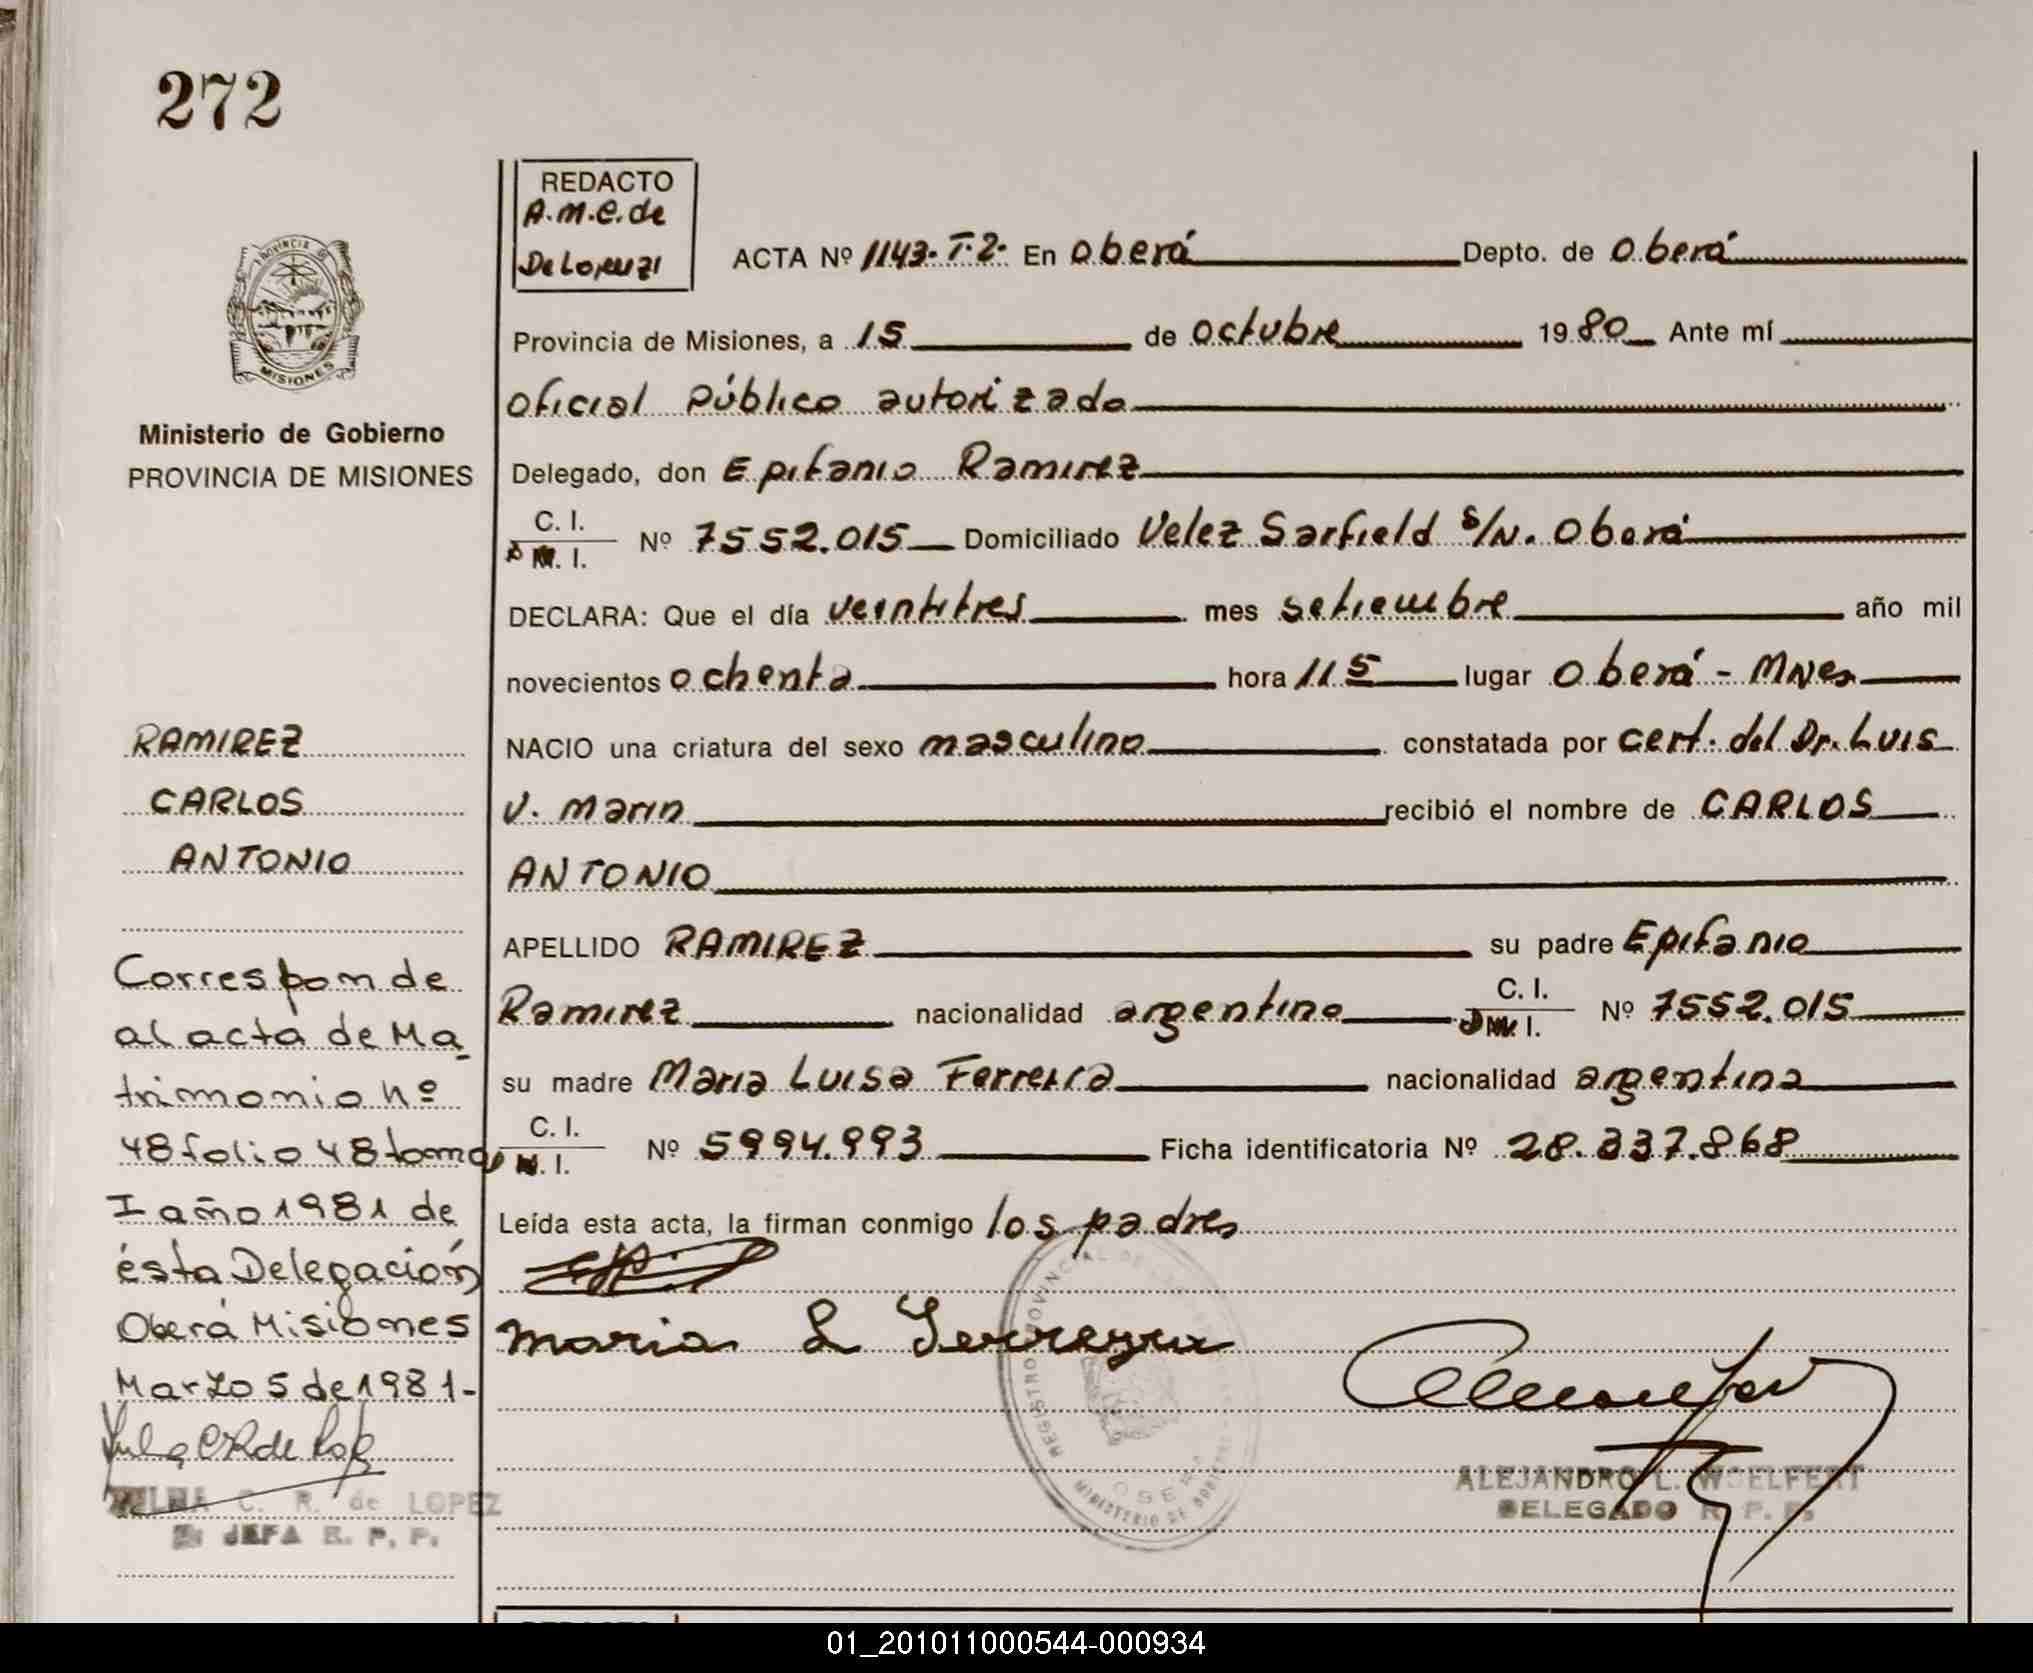 272
REDACTO
A.M.C. de
De Lorenzi
ACTA Nº 1143-T.2- En Oberá Depto. de Oberá
Provincia de Misiones, a 15 de octubre 1980 Ante mí
oficial Público autorizado
Delegado, don Epifanio Ramirez
C. I.
D M. I. Nº 7552.015 Domiciliado Velez Sarfield s/N. Oberá
DECLARA: Que el día veintitres mes setiembre año mil
novecientos ochenta hora 11 5 lugar Oberá - Mnes
NACIO una criatura del sexo masculino constatada por cert. del Dr. Luis
V. Marin recibió el nombre de CARLOS
ANTONIO
APELLIDO RAMIREZ su padre Epifanio
Ramirez nacionalidad argentino C. I.
D M. I. Nº 7552.015
su madre Maria Luisa Ferreira nacionalidad argentina
C. I.
M. I. Nº 5994.993 Ficha identificatoria Nº 28.337.868
Leída esta acta, la firman conmigo los padres
Maria L Ferreyra
REGISTRO PROVINCIAL DE LAS
MINISTERIO DE GOBIERNO
OBERA
ALEJANDRO L. WOELFERT
DELEGADO R. P. P.
PROVINCIA DE
MISIONES
Ministerio de Gobierno
PROVINCIA DE MISIONES
RAMIREZ
CARLOS
ANTONIO
Corresponde
al acta de Ma-
trimonio nº
48 folio 48 tomo
I año 1981 de
ésta Delegación
Oberá Misiones
Marzo 5 de 1981-
C. R. de LOPEZ
JEFA R. P. P.
01_201011000544-000934